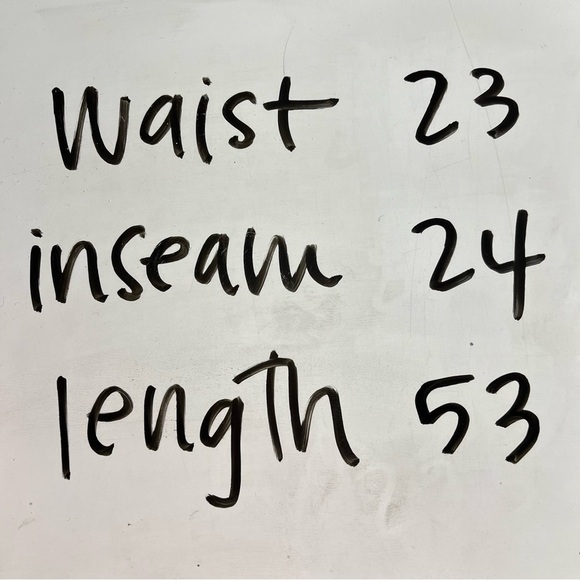 waist 23
inseam 24
length 53